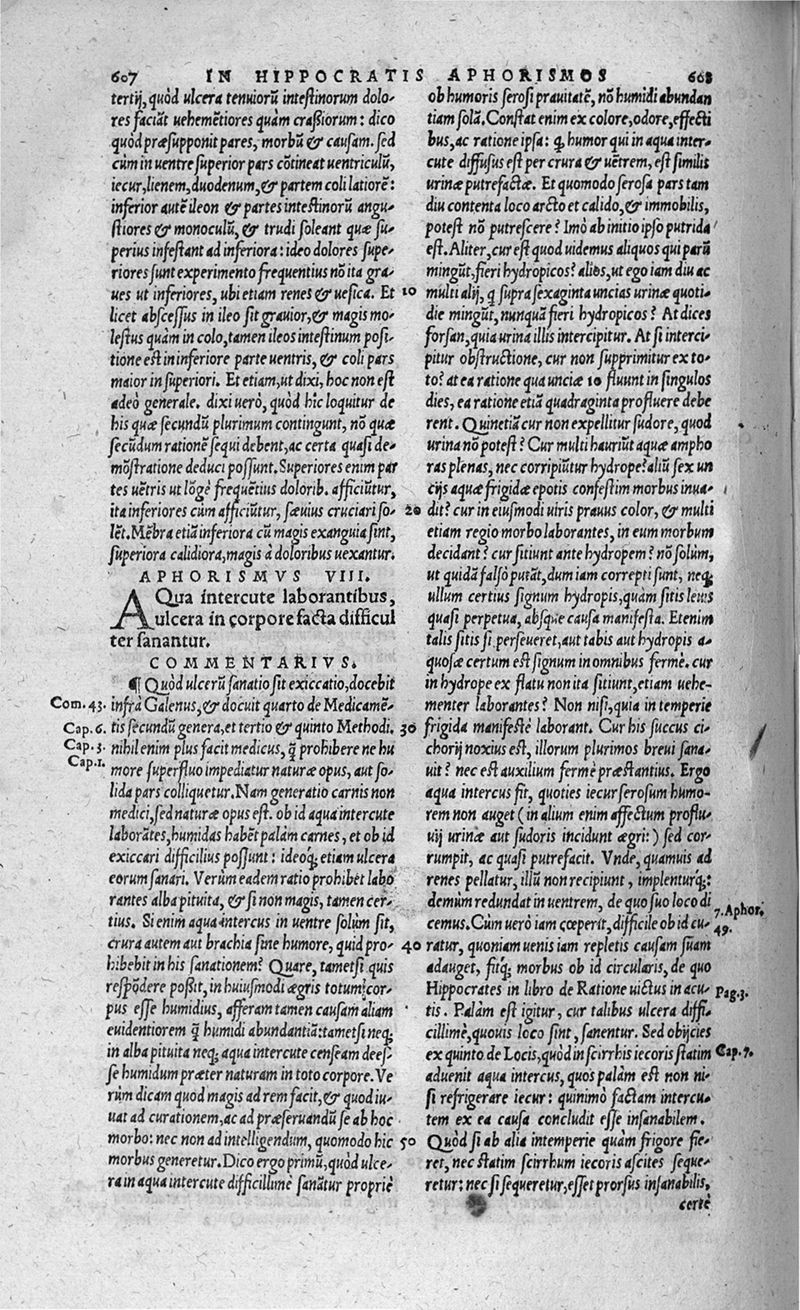 607 IN HIPPOCRATIS APHORISMOS 608
tertij, quòd ulcera tenuiorũ intestinorum dolo-
res faciãt uehemẽtiores quàm craßiorum: dico
quòd præsupponit pares, morbũ & causam. sed
cùm in uentre superior pars cõtineat uentriculũ,
iecur, lienem, duodenum, & partem coli latiorẽ:
inferior autẽ ileon & partes intestinorũ angu-
stiores & monoculũ, & trudi soleant quæ su-
perius infestant ad inferiora: ideo dolores supe-
riores sunt experimento frequentius nõ ita gra-
ues ut inferiores, ubi etiam renes & uesica. Et
licet abscessus in ileo sit grauior, & magis mo-
lestus quàm in colo, tamen ileos intestinum posi-
tione est in inferiore parte uentris, & coli pars
maior in superiori. Et etiam, ut dixi, hoc non est
adeò generale. dixi uerò, quòd hîc loquitur de
his quæ secundũ plurimum contingunt, nõ quæ
secũdum rationẽ sequi debent, ac certa quasi de-
mõstratione deduci possunt. Superiores enim par
tes uẽtris ut lõgè frequẽtius dolorib. afficiũtur,
ita inferiores cùm afficiũtur, sæuius cruciari so-
lẽt. Mẽbra etiã inferiora cũ magis exanguia sint,
superiora calidiora, magis à doloribus uexantur.
APHORISMVS VIII.
AQua intercute laborantibus,
ulcera in corpore facta difficul
ter sanantur.
COMMENTARIVS.
¶ Quòd ulcerũ sanatio sit exiccatio, docebit
Com. 43. infrà Galenus, & docuit quarto de Medicamẽ-
Cap. 6. tis secundũ genera, et tertio & quinto Methodi.
Cap. 3. nihil enim plus facit medicus, q̃ prohibere ne hu
Cap. 1. more superfluo impediatur naturæ opus, aut so-
lida pars colliquetur. Nam generatio carnis non
medici, sed naturæ opus est. ob id aqua intercute
laborãtes, humidas habẽt palàm carnes, et ob id
exiccari difficilius possunt: ideoq́; etiam ulcera
eorum sanari. Verùm eadem ratio prohibet labo
rantes alba pituita, & si non magis, tamen cer-
tius. Si enim aqua intercus in uentre solùm sit,
crura autem aut brachia sine humore, quid pro-
hibebit in his sanationem? Quare, tametsi quis
respõdere poßit, in huiusmodi ægris totum cor-
pus esse humidius, afferam tamen causam aliam
euidentiorem q̃ humidi abundantiã: tametsi neq;
in alba pituita neq; aqua intercute censeam dees-
se humidum præter naturam in toto corpore. Ve
rùm dicam quod magis ad rem facit, & quod iu-
uat ad curationem, ac ad præseruandũ se ab hoc
morbo: nec non ad intelligendum, quomodo hic
morbus generetur. Dico ergo primũ, quòd ulce-
ra in aqua intercute difficillimè sanãtur propriè
ob humoris serosi prauitatẽ, nõ humidi abundan
tiam solã. Constat enim ex colore, odore, effecti
bus, ac ratione ipsa: q̃ humor qui in aqua inter-
cute diffusus est per crura & uẽtrem, est similis
urinæ putrefactæ. Et quomodo serosa pars tam
diu contenta loco arcto et calido, & immobilis,
potest nõ putrescere? Imò ab initio ipso putrida
est. Aliter, cur est quod uidemus aliquos qui parũ
mingũt, fieri hydropicos? alios, ut ego iam diu ac
10 multi alij, q̃ supra sexaginta uncias urinæ quoti-
die mingũt, nunquã fieri hydropicos? At dices
forsan, quia urina illis intercipitur. At si interci-
pitur obstructione, cur non supprimitur ex to-
to? at ea ratione qua unciæ 10 fluunt in singulos
dies, ea ratione etiã quadraginta profluere debe
rent. Quinetiã cur non expellitur sudore, quod
urina nõ potest? Cur multi hauriũt aquæ ampho
ras plenas, nec corripiũtur hydrope? aliũ sex un
cijs aquæ frigidæ epotis confestim morbus inua-
20 dit? cur in eiusmodi uiris prauus color, & multi
etiam regio morbo laborantes, in eum morbum
decidant? cur sitiunt ante hydropem? nõ solùm,
ut quidã falsò putãt, dum iam correpti sunt, neq;
ullum certius signum hydropis, quàm sitis leuis
quasi perpetua, absque causa manifesta. Etenim
talis sitis si perseueret, aut tabis aut hydropis a-
quosæ certum est signum in omnibus fermè. cur
in hydrope ex flatu non ita sitiunt, etiam uehe-
menter laborantes? Non nisi, quia in temperie
30 frigida manifestè laborant. Cur his succus ci-
chorij noxius est, illorum plurimos breui sana-
uit? nec est auxilium fermè præstantius. Ergo
aqua intercus fit, quoties iecur serosum humo-
rem non auget (in alium enim affectum proflu-
uij urinæ aut sudoris incidunt ægri:) sed cor-
rumpit, ac quasi putrefacit. Vnde, quamuis ad
renes pellatur, illũ non recipiunt, implenturq́;:
demùm redundat in uentrem, de quo suo loco di
cemus. Cùm uerò iam cœperit, difficile ob id cu- 7. Aphor. 49.
40 ratur, quoniam uenis iam repletis causam suam
adauget, fitq́; morbus ob id circularis, de quo
Hippocrates in libro de Ratione uictus in acu- Pag. 3.
tis. Palàm est igitur, cur talibus ulcera diffi-
cillimè, quouis loco sint, sanentur. Sed obijcies
ex quinto de Locis, quòd in scirrhis iecoris statim Cap. 7.
aduenit aqua intercus, quos palàm est non ni-
si refrigerare iecur: quinimò factam intercu-
tem ex ea causa concludit esse insanabilem.
50 Quòd si ab alia intemperie quàm frigore fie-
ret, nec statim scirrhum iecoris ascites seque-
retur: nec si sequeretur, esset prorsus insanabilis,
certè